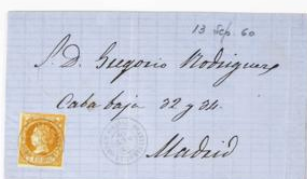 13 Sep. 60
S. D. Gregorio Rodriguez
Caba baja 32 y 34.
Madrid